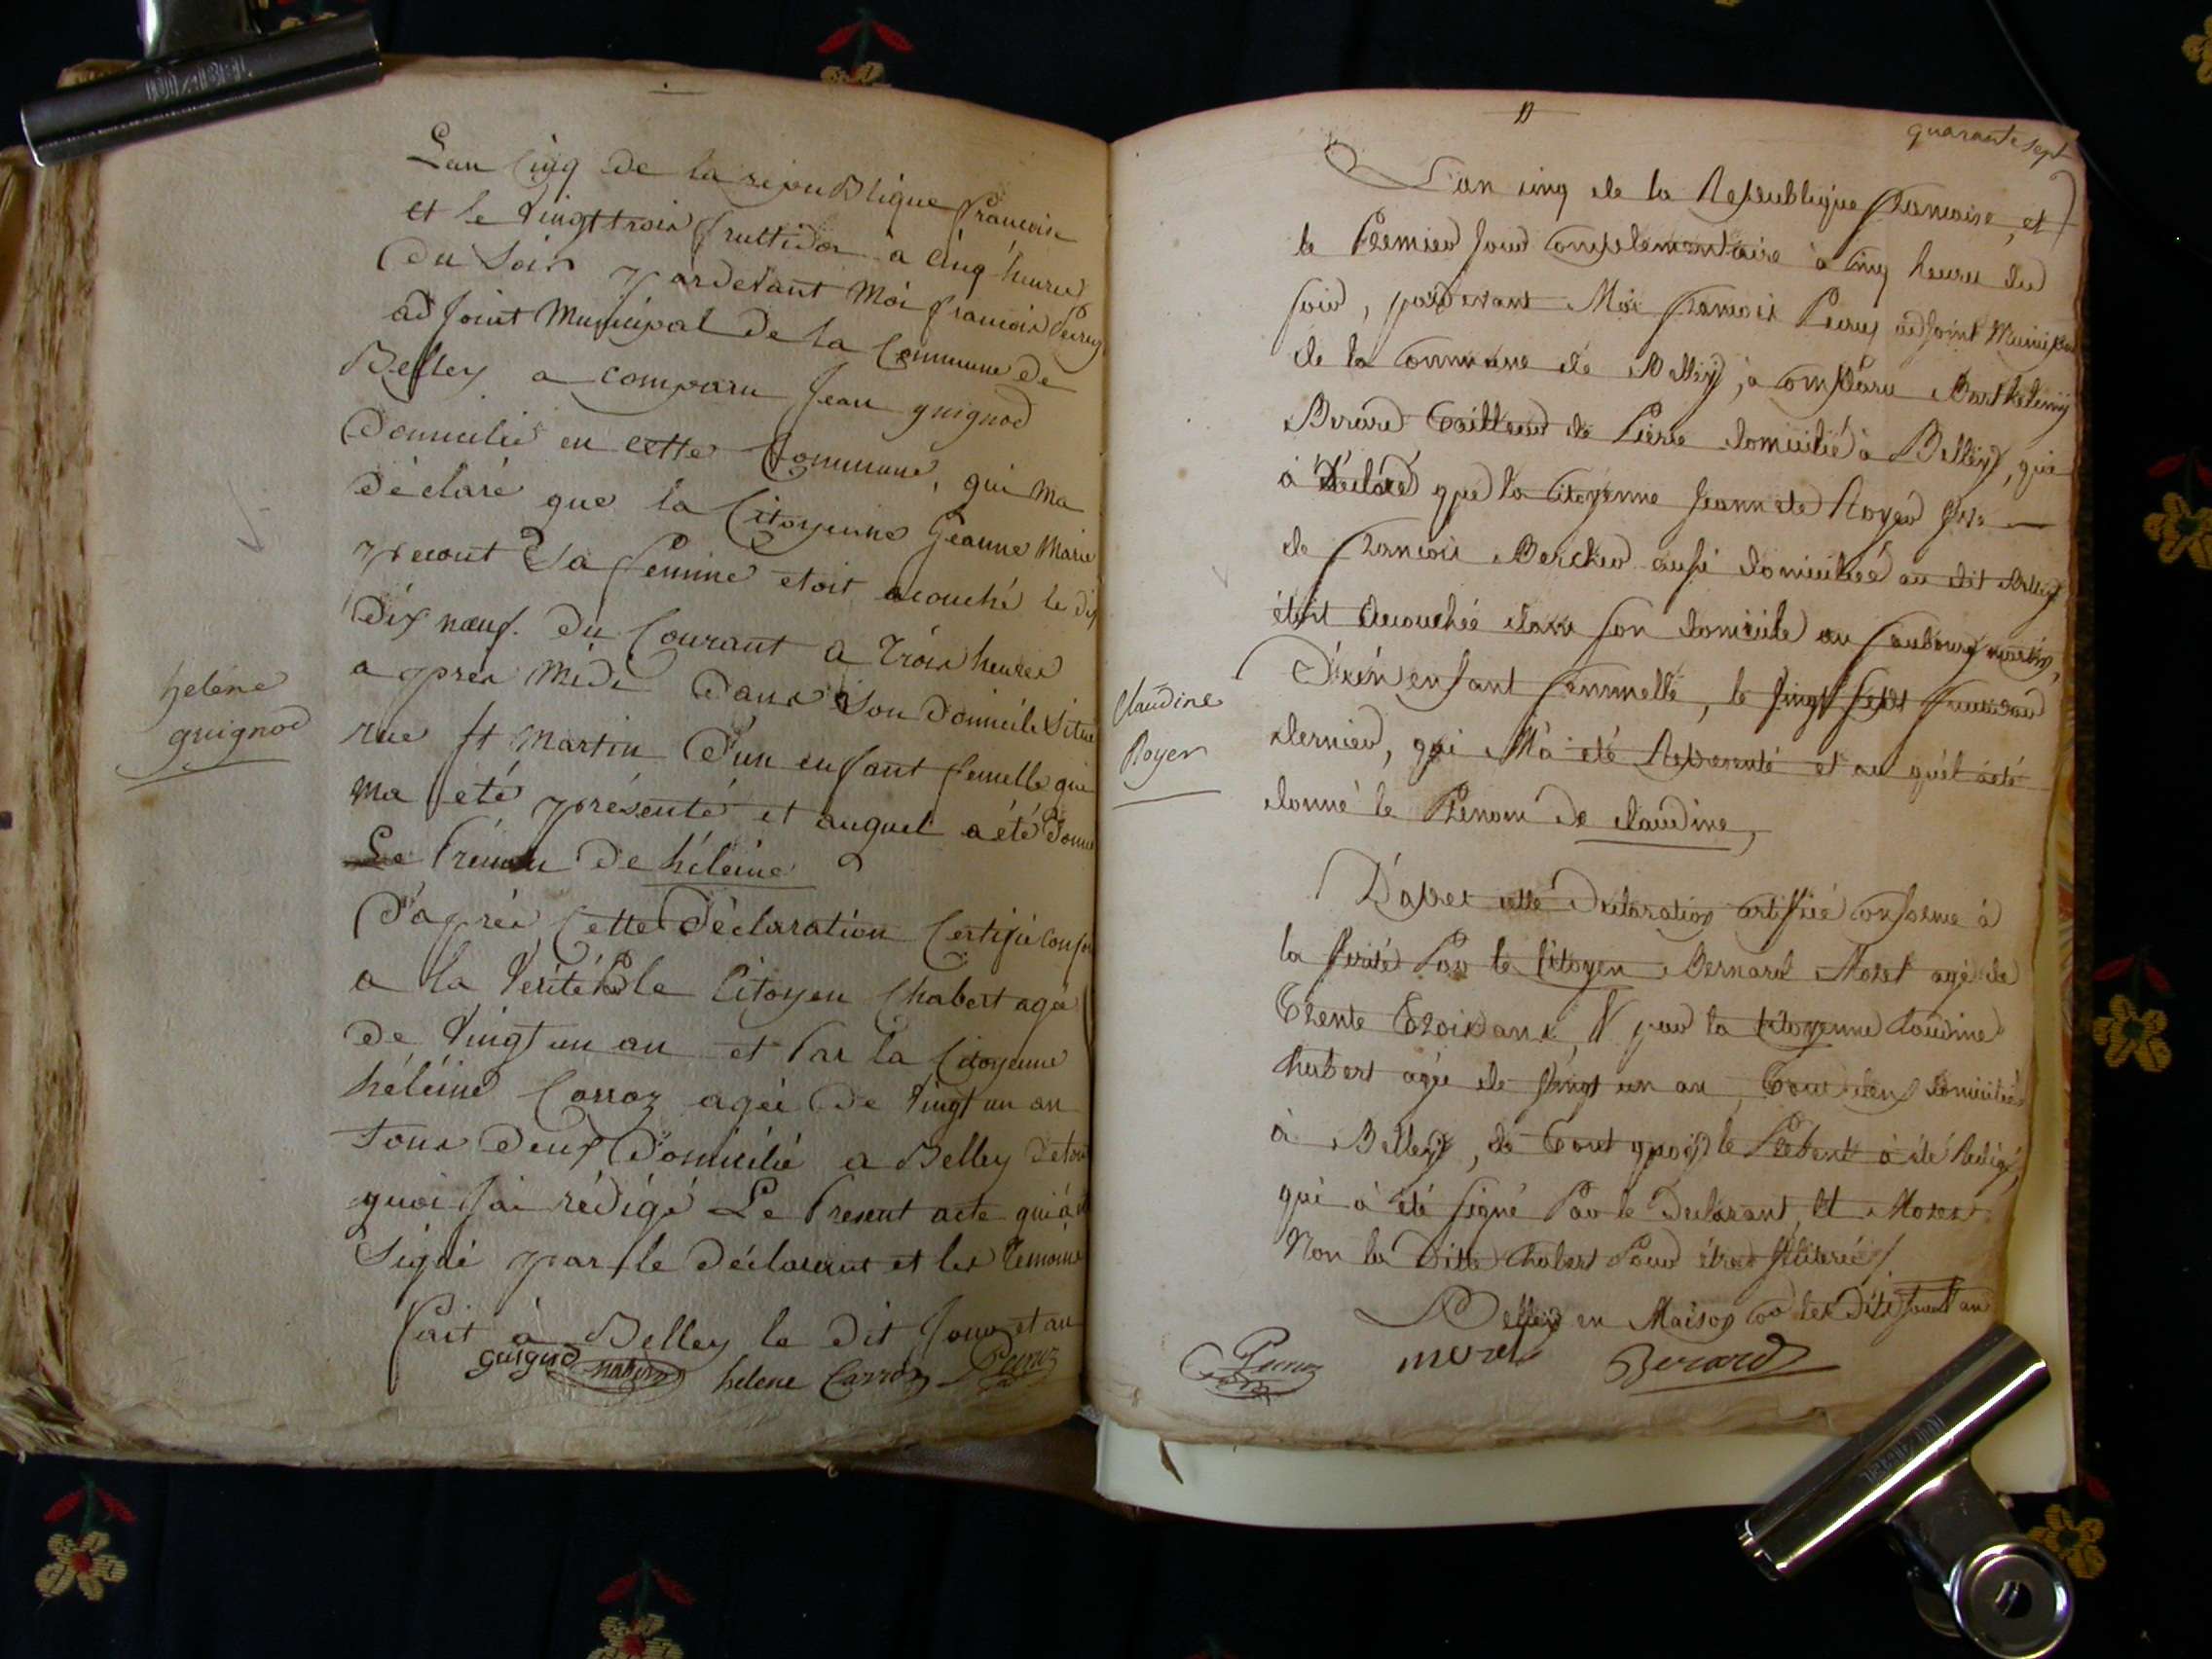 Lan Cinq de la republique francoise
et le vingt trois fructidor à cinq heures
du Soir pardevant moi francois Peruz
adjoint Municipal de la Commune de
Belley a comparu Jean guignod
domicilié en cette Commune, qui ma
déclaré que la Citoyenne Jeanne Marie
Sa femme etoit acouché le dix
dix nœuf du Courant a trois heures
a apres midi dans Son domicile Situé
rue st Martin d'un enfant femelle qui
ma été présenté et auquel a été donné
Le Prénom de héleine
helene
guignod
D'après Cette déclaration Certifié
a la vérité le Citoyen Chabert agée
de vingt un an et Par la Citoyenne
héleine Carroz agée de vingt un an
tous deux domicilié a Belley de tout
quoi J'ai rédigé Le Present acte qui a été
Signé par le déclarant et les temoins
fait à Belley le dit Jour et an
guignod helene Carroz Peruz
quarante sept
L'an cinq de la Republique francoise, et
le Premier Jour Complementaire à cinq heures du
soir, pardevant Moi francois Peruz adjoint Municipal
de la Commune de Belley, à Comparu Barthelemy
Berard tailleur de Pierre domicilié à Belley, qui
à déclaré que la Citoyenne Jeannete Royer
de francois Bercher aussi domiciliée au dit Belley
étoit accouchée dans son domicile au faubourg
D'un enfant femmelle, le vingt sept fructidor
dernier, qui M'à été Representé et au quel àeté
donné le Prenom de claudine,
Claudine
Royer
D'apres cette Declaration certifiée conforme à
la verité Par le Citoyen Bernard Morel agé de
trente trois ans, & par la Citoyenne Claudine
Chabert agée de vingt un an, tous deux domiciliés
à Belley, de tout quoy le Present à été Redigé,
qui à été signé Par le Declarant, et Morel
Non la Ditte Chabert Pour étre Illiterée
Belley en Maison Co les Dits Jour et an
Peruz morel Berard